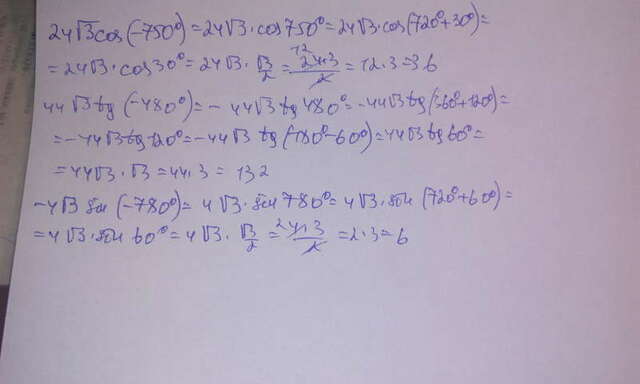 24√3cos(-750°)=24√3·cos750°=24√3·cos(720°+30°)=
=24√3·cos30°=24√3·√3/2=12 24·3/2=12·3=36
44√3tg(-480°)=-44√3tg480°=-44√3tg(360°+120°)=
=-44√3tg120°=-44√3 tg(180°-60°)=44√3tg60°=
=44√3·√3=44·3=132
-4√3 sin(-780°)=4√3·sin780°=4√3·sin(720°+60°)=
=4√3·sin60°=4√3·√3/2=2 4·3/2=2·3=6